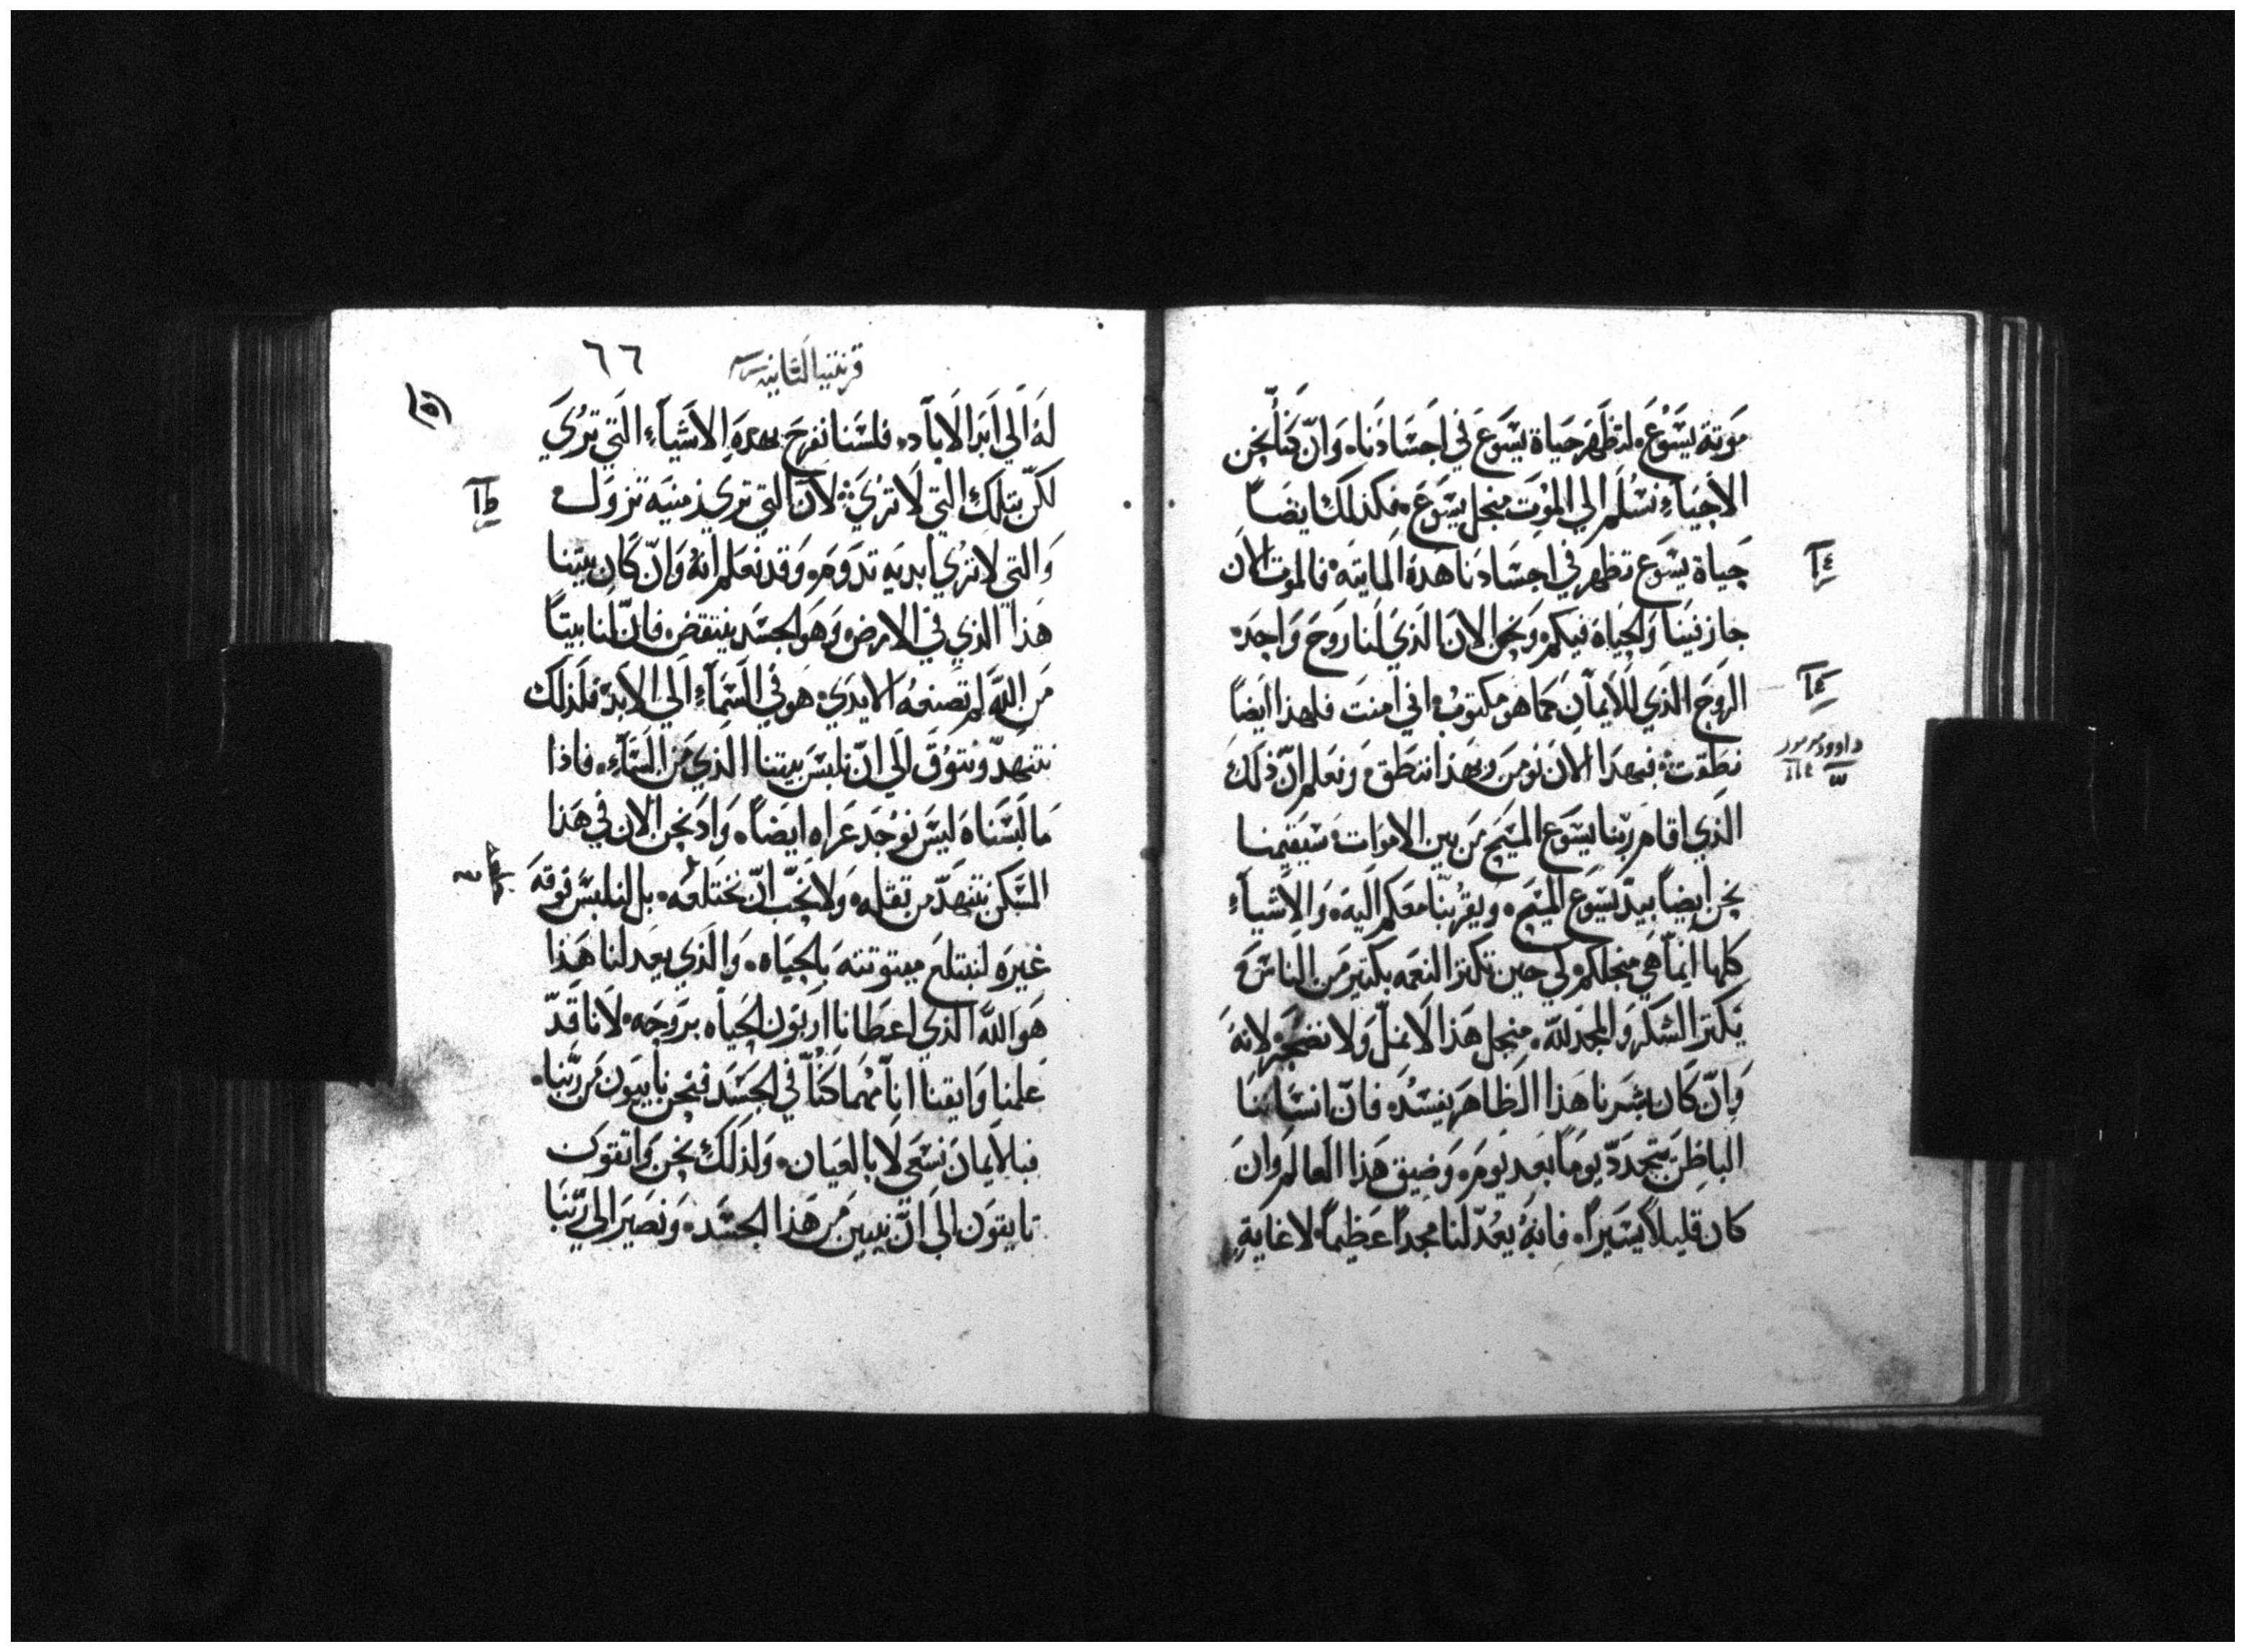 موتة يسوع، لتظهر حياة يسوع في اجسادنا، وان كنا نحن
الاحياء نسلم الي الموت منجل يسوع، فكذلك ايضاً
حياة يسوع تظهر في اجسادنا هذه المايته، فالموت الان
جاز فينا والحياة فيكم، ونحن الان الذي لنا روح واحده
الروح الذي للايمان كما هو مكتوب، اني امنت فلهذا ايضاً
نطقت، فبهذا الان نومن وبهذا ننطق، ونعلم ان ذلك
الذي اقام ربنا يسوع المسيح من بين الاموات، سيقيمنا
نحن ايضاً بيد يسوع المسيح، ويقربنا معكم اليه، والاشياء
كلها انما هي منجلكم، لي حين تكتر النعمه بكتير من الناس،
يكتر الشكر والمجد لله، منجل هذا لا نمل ولا نضجر، لانه
وان كان بشرنا هذا الظاهر يفسد، فان انساننا
الباطن يتجدد يوماً بعد يوم، وضيق هذا العالم وان
كان قليلاً يسيراً، فانه يعد لنا مجداً عظيماً لا غاية
قرنتيا التانيه
٦٦
له الي ابد الاباد، فلسنا نفرح بهذه الاشياء التي تري
لكن بتلك التي لا تري، لان التي تري زمنيه تزول
والتي لا تري ابديه تدوم، وقد نعلم انه وان كان بيتنا
هذا الذي في الارض، وهو الجسد ينتقض، فان لنا بيتاً
من الله لم تصنعه الايدي، هو في السماء الي الابد، فلذلك
نتنهد ونتوق الي ان نلبس بيتنا الذي من السماء، فاذا
ما لبسناه ليس نوجد عراه ايضاً، واذ نحن الان في هذا
المسكن نتنهد من تقله، ولا نحب ان نختلعه، بل لنلبس فوقه
غيره لنبتلع ميتوتته بالحياه، والذي يعد لنا هذا
هو الله الذي اعطانا اربون الحياه بروحه، لانا قد
علمنا وايقنا انا مهما كنا في الجسد فنحن نابيون من ربنا،
فبالايمان نسعي لا بالعيان، ولذلك نحن واتقون
تايقون الي ان نبين من هذا الجسد، ونصير الي ربنا